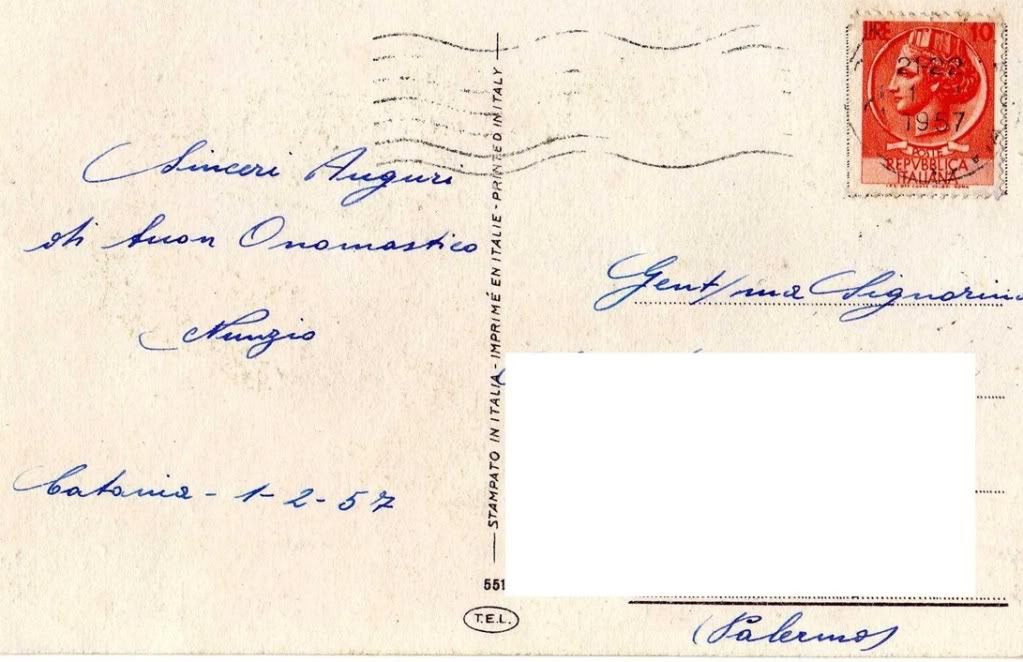 Sinceri Auguri
di buon Onomastico
Nunzio
Catania - 1-2-57
STAMPATO IN ITALIA - IMPRIMÉ EN ITALIE - PRINTED IN ITALY
551
T.E.L.
LIRE 10
21-22
1957
POSTE
REPVBBLICA
ITALIANA
Gent/ma Signorina
(Palermo)